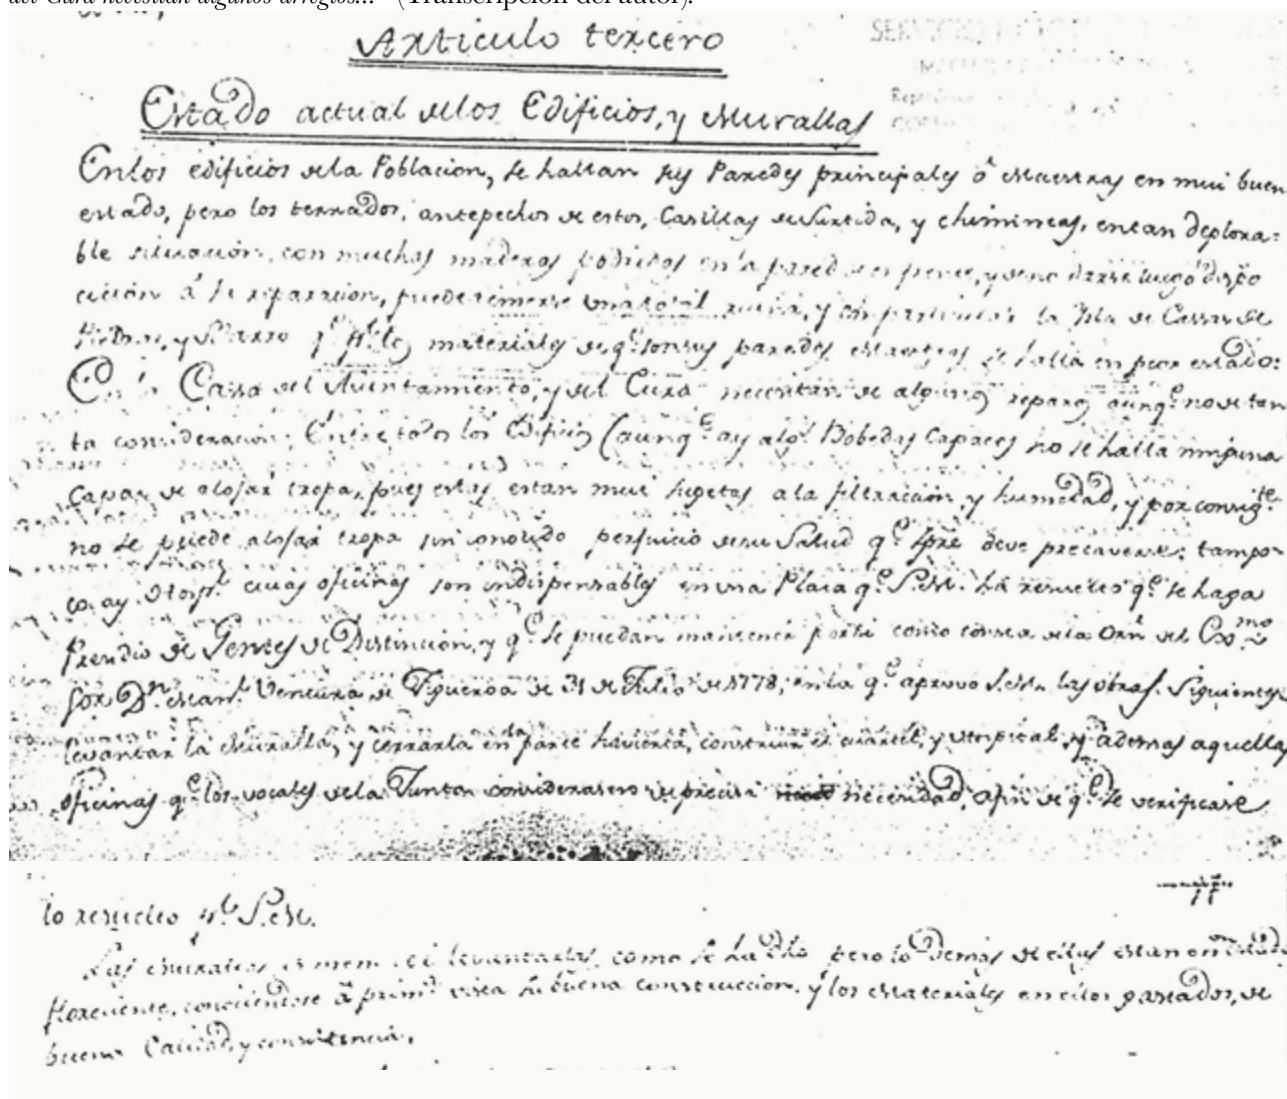 del Cura necesitan algunos arreglos..." (Transcripción del autor).
Articulo tercero
Estado actual de los Edificios, y Murallas
En los edificios de la Poblacion, se hallan sus Paredes principales ó Maestras en mui buen
estado, pero los terrados, antepechos de estos, Casillas de Surtida, y chimineas, estan deplora=
ble situacion, con muchos maderos podridos en la pared y no darse luego dispo
cicion á la reparacion, puede temerse ruina, y en particular la Isla de Cassas de
Piedras, y Barro q.e materiales de q.e son sus paredes Maestras se halla en peor estado:
En la Cassa del Aiuntamiento, y del Cura necesitan de algunos reparos aunq.e no de tan
ta consideracion; Entre todos los Edificios (aunq.e ay alg.s Bobedas Capaces no se halla ninguna
capas de alojar tropa, pues estas estan mui sugetas a la filtracion y humedad, y por consig.te
no se puede alojar tropa sin conosido perjuicio de su Salud q.e spre deve precaverse; tampo-
co ay Otospl. cuias oficinas son indispensables en una Plaza q.e S.M. ha resuelto q.e se haga
Presidio de Gentes de Distincion, y q.e se puedan mantener por si como consta de la Orn. del Exmo.
Sor. Dn. Man.l Ventura de Figueroa de 31 de Julio de 1778, en la q.e aprovo S.M. las obras siguientes
levantar la Muralla, y cerrarla en parte havierta, construir el cuartel, y otospital, y ademas aquellas
oficinas q.e los vocales de la Junta considerasen de precisa necesidad, afin de q.e se verificase
lo resuelto p.r S.M.
Las Murallas levantarlas, como se ha dho pero lo demas de ellas estan en estado
floreciente, conociendose á prim.a vista su buena construccion, y los Materiales en ellos gastados, de
buena Calidad, y consistencia.